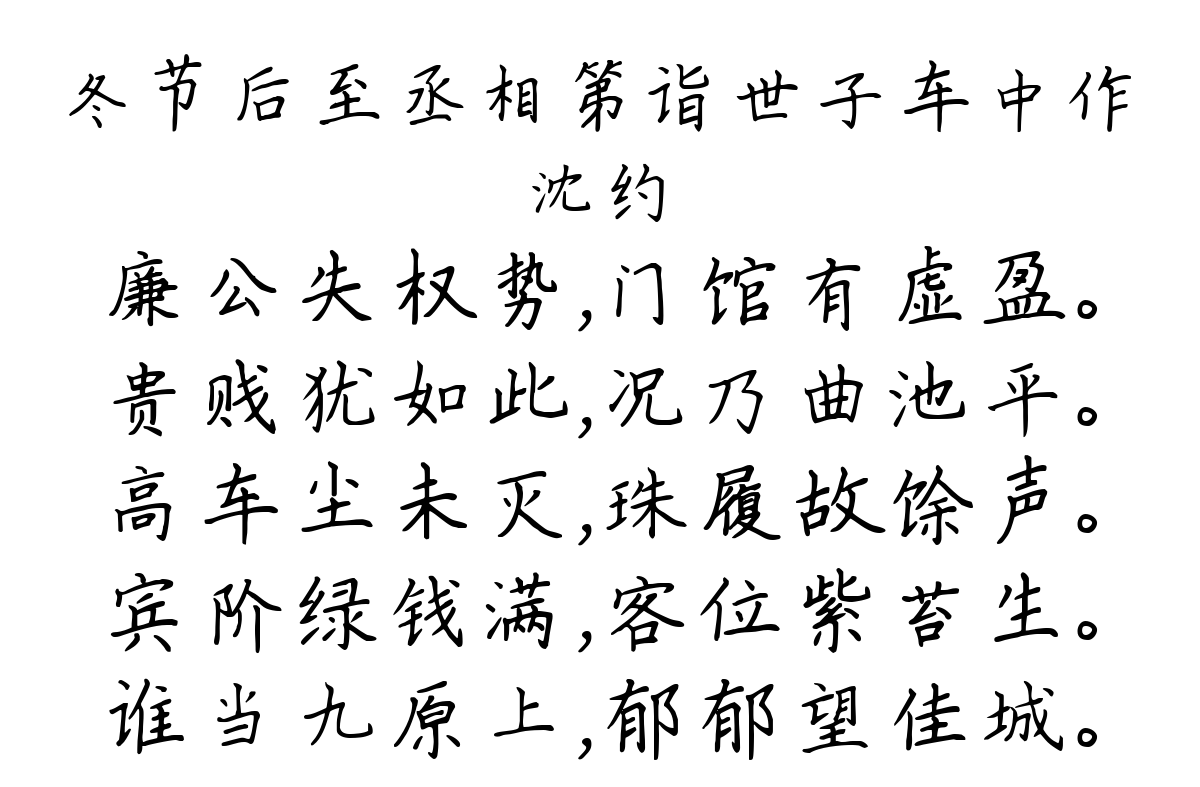 冬节后至丞相第诣世子车中作
沈约
廉公失权势,门馆有虚盈。
贵贱犹如此,况乃曲池平。
高车尘未灭,珠履故馀声。
宾阶绿钱满,客位紫苔生。
谁当九原上,郁郁望佳城。